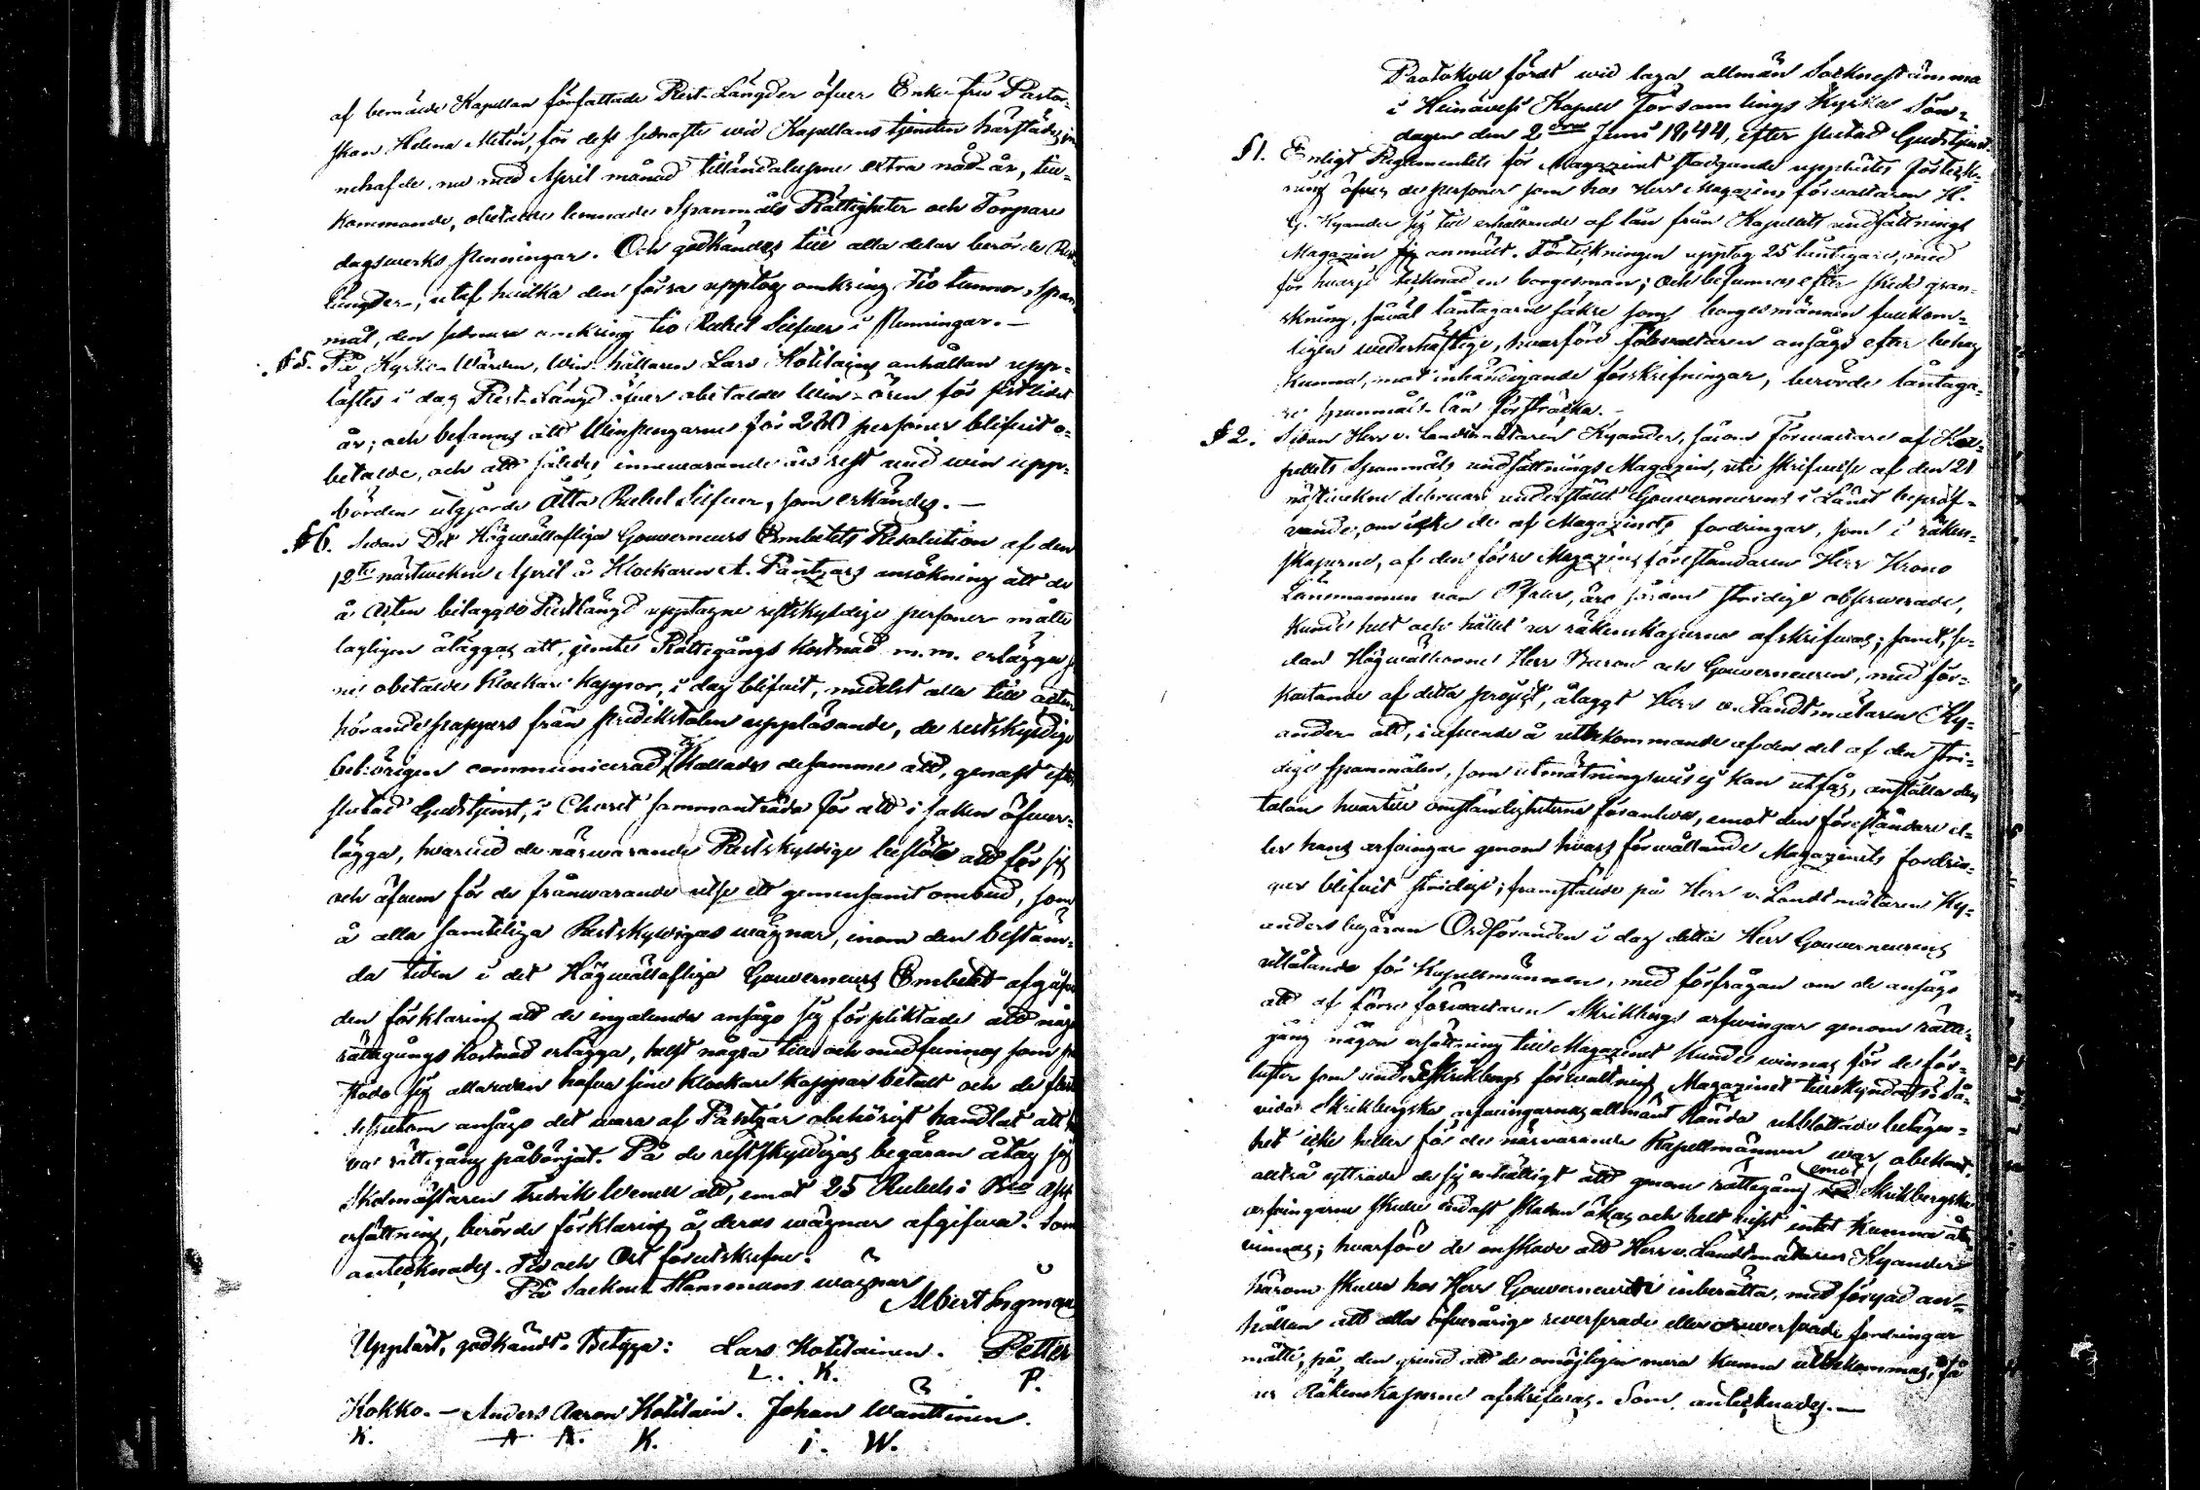 af bemälde Kapellan författade Rest-Längder öfver Enke fru Pasto-
rskan Helena Meten, för dess sednaste wid Kapellans tjensten härstädes in-
nehafde, nu med April månad tilländalupne extra nåd-år, till-
kommande, obetalde lemnade Spanmåls Rättigheter och Torpare
dagswerks penningar. Och godkändes till alla delar berörde Rest-
längder, utaf hvilka den förra upptog omkring Tio tunnor Span-
mål, den sednare omkring tio Rubel Silfver i penningar.—
§5. På Kyrko-Wärden, Win-hållaren Lars Kotilains anhållan upp-
lästes i dag Rest-Längd öfver obetalde Win-ören för förlidet
år; och befanns att Winpengarne för 220 personer blifvit o-
betalde, och att således innewarande års rest med win upp-
börden utgjorde Åtta Rubel Silfver, som erkändes.—
§6. Sedan Det Högwälloflige Gouverneurs Embetets Resolution af den
12te nästwekne April å Klockaren A. Pantzars ansökning att de
å Acten bilaggde Restlängd upptagne restskyldige personer måtte
lagligen åläggas att, jemte Rättegångs kostnad m.m. erlägga si-
ne obetalde Klockare kappor, i dag blifvit, medelst alla till acten
hörande pappers från predikstolen uppläsande, de restskyldige
behörigen communicerad, kallades desamma att, genast efter
slutad Gudstjenst, i Choret sammanträda för att i saken öfver-
lägga, hvarwid de närwarande Restskyldige beslöto att för sig
och äfwen för de frånwarande utse ett gemensamt ombud, som
å alla samteliga Restskyldigas wägnar, inom den bestäm-
da tiden i det Högwälloflige Gouverneurs Embetet afgifwa
den förklaring att de ingalunda ansågo sig förpliktade att någon
rättegångs kostnad erlägga, helst några till och med funnos som på-
stodo sig allaredan hafva sine Klockare kappor betalt och de flesta
dessutom ansågo det wara af Pantzar obehörigt handlat att
rättegång påbörjat. På de restskyldigas begäran åtog sig
Skolmästaren Fredrik Wenell att, emot 25 Rubels i Bco Ass.
ersättning, berörde förklaring å deras wägnar afgifwa. Som
antecknades. Tid och Ort förutskrefne.
På Sockne Stämmans wägnar
Albert Ingman
Uppläst, godkändt. Betyga: Lars Kotilainen. Petter
L. K. P.
Kokko.— Anders Aaron Kotilain. Johan Wänttinen.
K. A. A. K. i. W.
Protokoll fördt wid laga allmän Socknestämma
i Heinävesi Kapell Församlings Kyrka Sön-
dagen den 2dra Juni 1844, efter slutad Gudstjenst.
§1. Enligt Reglementets för Magazinet stadgande upplästes förteck-
ning öfver de personer som hos Herr Magazins förvaltaren H.
G. Kyander sig till erhållande af lån från Kapellets undsättnings
Magazin anmält. Förteckningen upptog 25 låntagare, med
för hvarje tecknad en borgesman; och befunnos efter skedd gran-
skning, såväl låntagarne säkre som borgesmännen fullkom-
ligen wederhäftige, hvarföre Förvaltaren ansågs efter behag
kunna, mot inhändigande förskrifningar, berörde låntaga-
re spanmåls lån försträcka.—
§2. Sedan Herr v. Landtmätaren Kyander, såsom Förwaltare af Ka-
pellets Spanmåls undsättnings Magazin, uti skrifwelse af den 21
nästwekne Februari underställt Gouverneurens i Länet bepröf-
vande, om icke de af Magazinets fordringar, som i räken-
skaperne, af den förre Magazins föreståndaren Herr Krono
Länsmannen von Pfaler, äro såsom stridige observerade,
kunde helt och hållet ur räkenskaperne afskrifwas; samt, se-
dan Högwälborne Herr Baron och Gouverneuren, med för-
kastande af detta project, ålaggt Herr v. Landtmätaren Ky-
ander att, i afseende å utbekommande af den del af den stri-
dige spanmålen, som utmätningswis ej kan utfås, anställa den
talan hwartill omständigheterne föranleda, emot den föreståndare el-
ler hans arfwingar genom hvars förwållande Magazinets fordrin-
gar blifvit stridige; framställde på Herr v. Landtmätaren Ky-
anders begäran Ordföranden i dag detta Herr Gouverneurens
utlåtande för Kapellmännen, med förfrågan om de ansågo
att af förre förwaltaren Skrikbergs arfwingar genom rätte-
gång någon ersättning till Magazinet kunde winnas för de för-
luster som under Skrikbergs förwaltning Magazinet tillskyndats. Så-
vida Skrikbergska arfwingarnas allmänt kända utblottade belägen-
het icke heller för de närvarande Kapellmännen war obekant,
alltså yttrade de sig enhälligt att genom rättegång emot Skrikbergska
arfwingarne skulle endast skadan ökas och helt wisst intet kunna åter-
winnas; hvarföre de önskade att Herr v. Landtmätaren Kyander
härom skulle hos Herr Gouverneuren inberätta, med förnyad an-
hållan att alla öfweråriga reverserade eller oreverserade fordringar
måtte, på den grund att de omöjligen mera kunna utbekommas, få
ur Räkenskaperne afskrifwas. Som antecknades.—